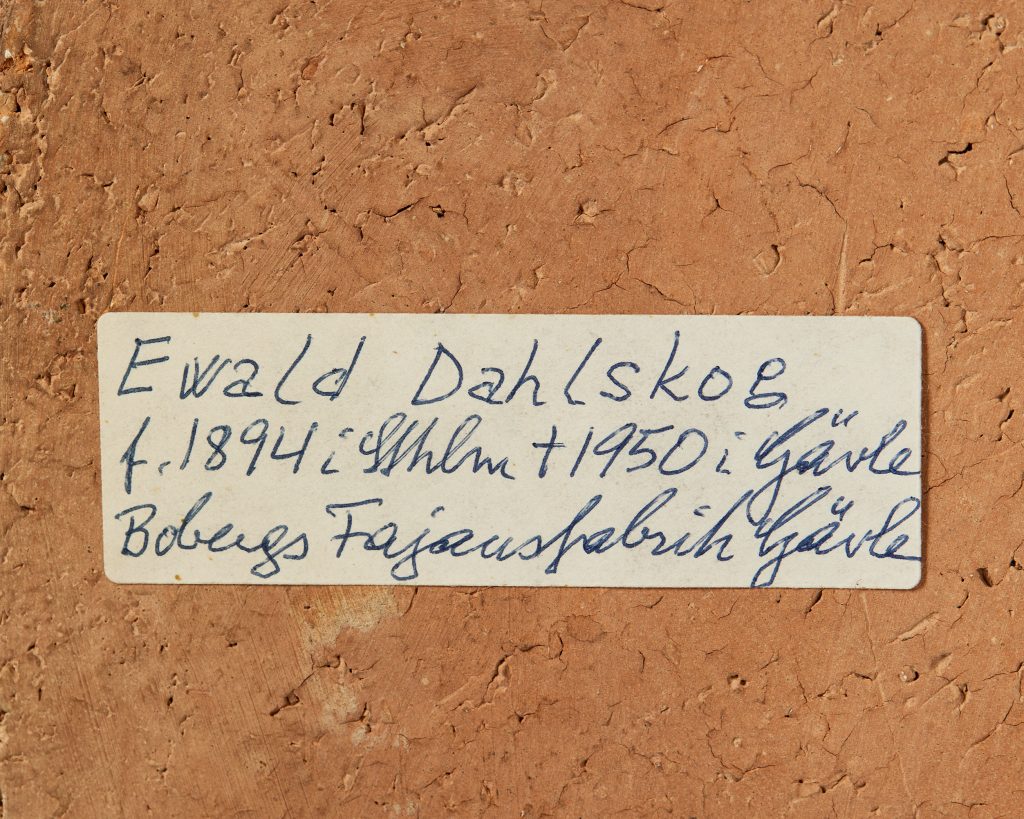 Ewald Dahlskog
f. 1894 i Sthlm † 1950 i Gävle
Bobergs Fajansfabrik Gävle